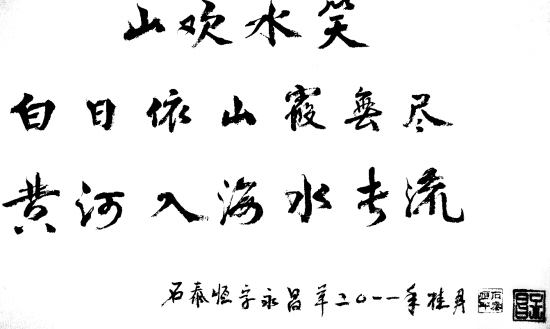 山欢水笑
白日依山霞無尽
黄河入海水长流
石泰恒字永昌草二〇一一年桂月